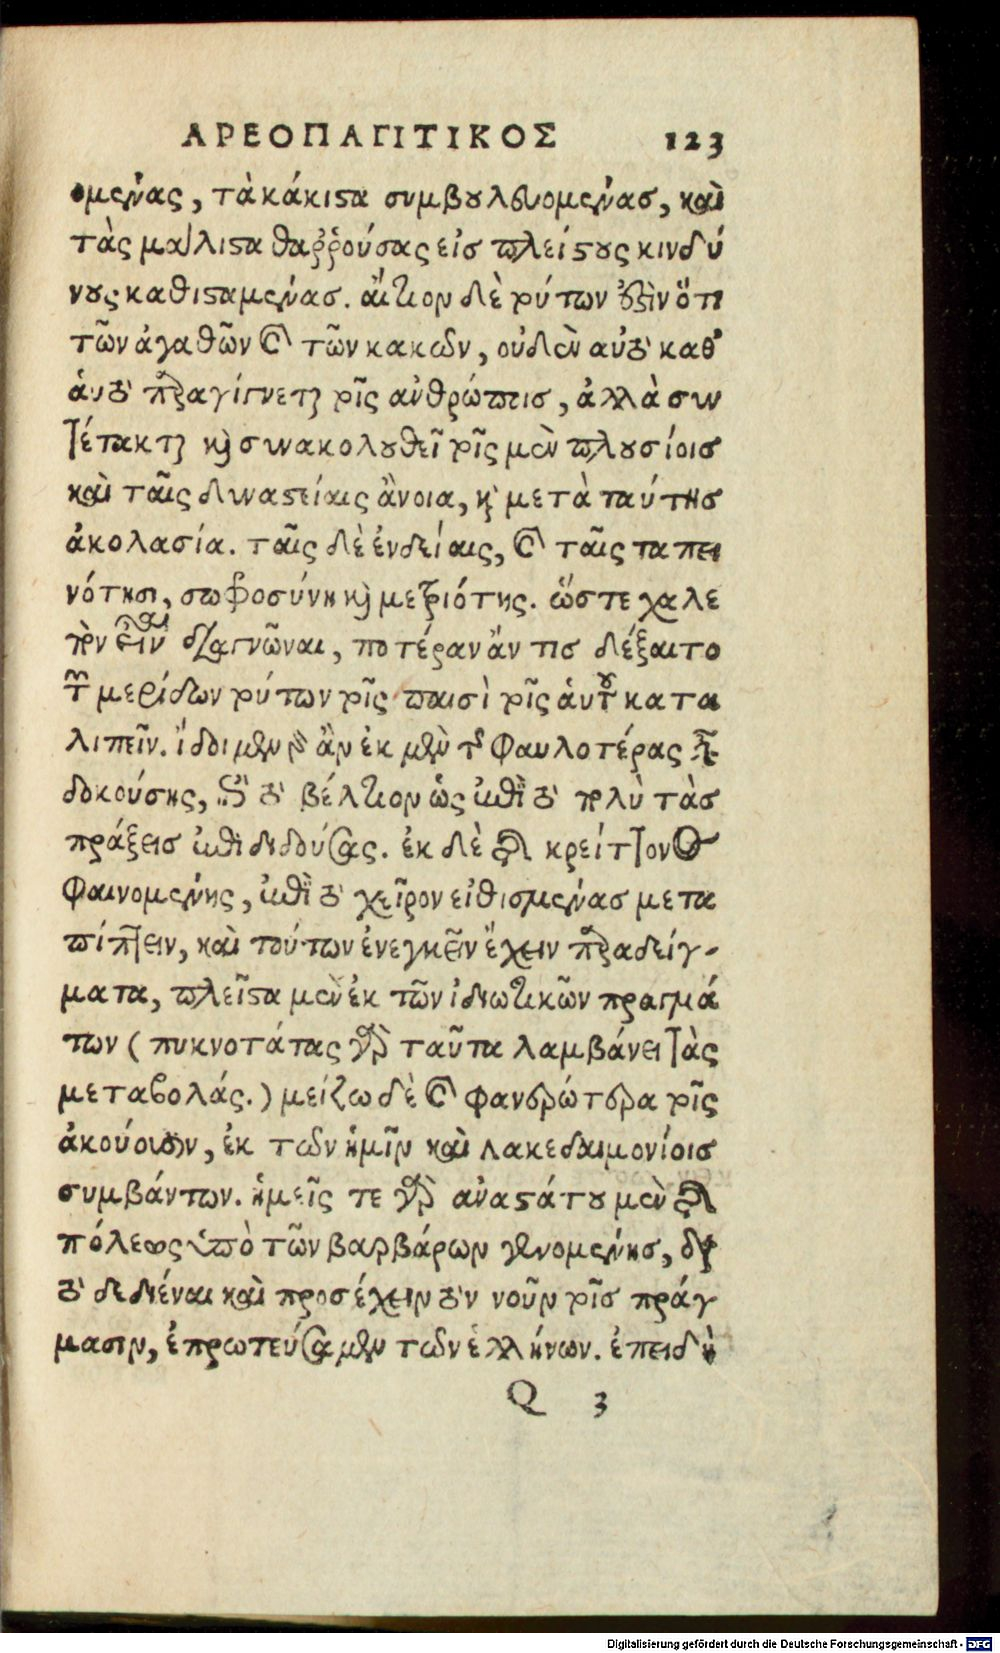 ΑΡΕΟΠΑΓΙΤΙΚΟΣ 123
ομένας, τὰ κάκιστα συμβουλευομένας, καὶ
τὰς μάλιστα θαῤῥούσας εἰς πλείστους κινδύ
νους καθισταμένας. αἴτιον δὲ τούτων ἐστὶν ὅτι
τῶν ἀγαθῶν καὶ τῶν κακῶν, οὐδὲν αὐτὸ καθ'
αὑτὸ παραγίγνεται τοῖς ἀνθρώποις, ἀλλὰ συν
τέτακται καὶ συνακολουθεῖ τοῖς μὲν πλουσίοις
καὶ ταῖς δυναστείαις ἄνοια, καὶ μετὰ ταύτης
ἀκολασία. ταῖς δὲ ἐνδείαις, καὶ ταῖς ταπει
νότησι, σωφροσύνη καὶ μετριότης. ὥστε χαλε
πὸν εἶναι διαγνῶναι, ποτέραν ἄν τις δέξαιτο
τῶν μερίδων τούτων τοῖς παισὶ τοῖς αὑτοῦ κατα
λιπεῖν. ἴδοιμεν γὰρ ἂν ἐκ μὲν τῆς φαυλοτέρας εἶναι
δοκούσης, ἐπὶ τὸ βέλτιον ὡς ἐπὶ τὸ πολὺ τὰς
πράξεις ἐπιδιδούσας. ἐκ δὲ τῆς κρείττονος
φαινομένης, ἐπὶ τὸ χεῖρον εἰθισμένας μετα
πίπτειν, καὶ τούτων ἐνεγκεῖν ἔχειν παραδείγ-
ματα, πλεῖστα μὲν ἐκ τῶν ἰδιωτικῶν πραγμά
των (πυκνοτάτας γὰρ ταῦτα λαμβάνει τὰς
μεταβολάς.) μείζω δὲ καὶ φανερώτερα τοῖς
ἀκούουσιν, ἐκ τῶν ἡμῖν καὶ λακεδαιμονίοις
συμβάντων. ἡμεῖς τε γὰρ ἀναστάτου μὲν τῆς
πόλεως ὑπὸ τῶν βαρβάρων γενομένης, διὰ
τὸ δεδιέναι καὶ προσέχειν τὸν νοῦν τοῖς πράγ
μασιν, ἐπρωτεύσαμεν τῶν ἑλλήνων. ἐπειδὴ
Q 3
Digitalisierung gefördert durch die Deutsche Forschungsgemeinschaft - DFG